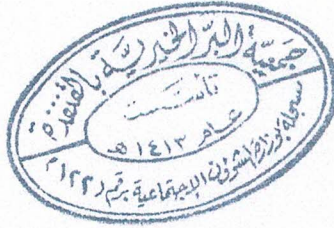 جمعية البر الخيرية بالقنفذة
تأسست
عام ١٤١٣ هـ
مسجلة بوزارة الشؤون الاجتماعية برقم (١٢٢)